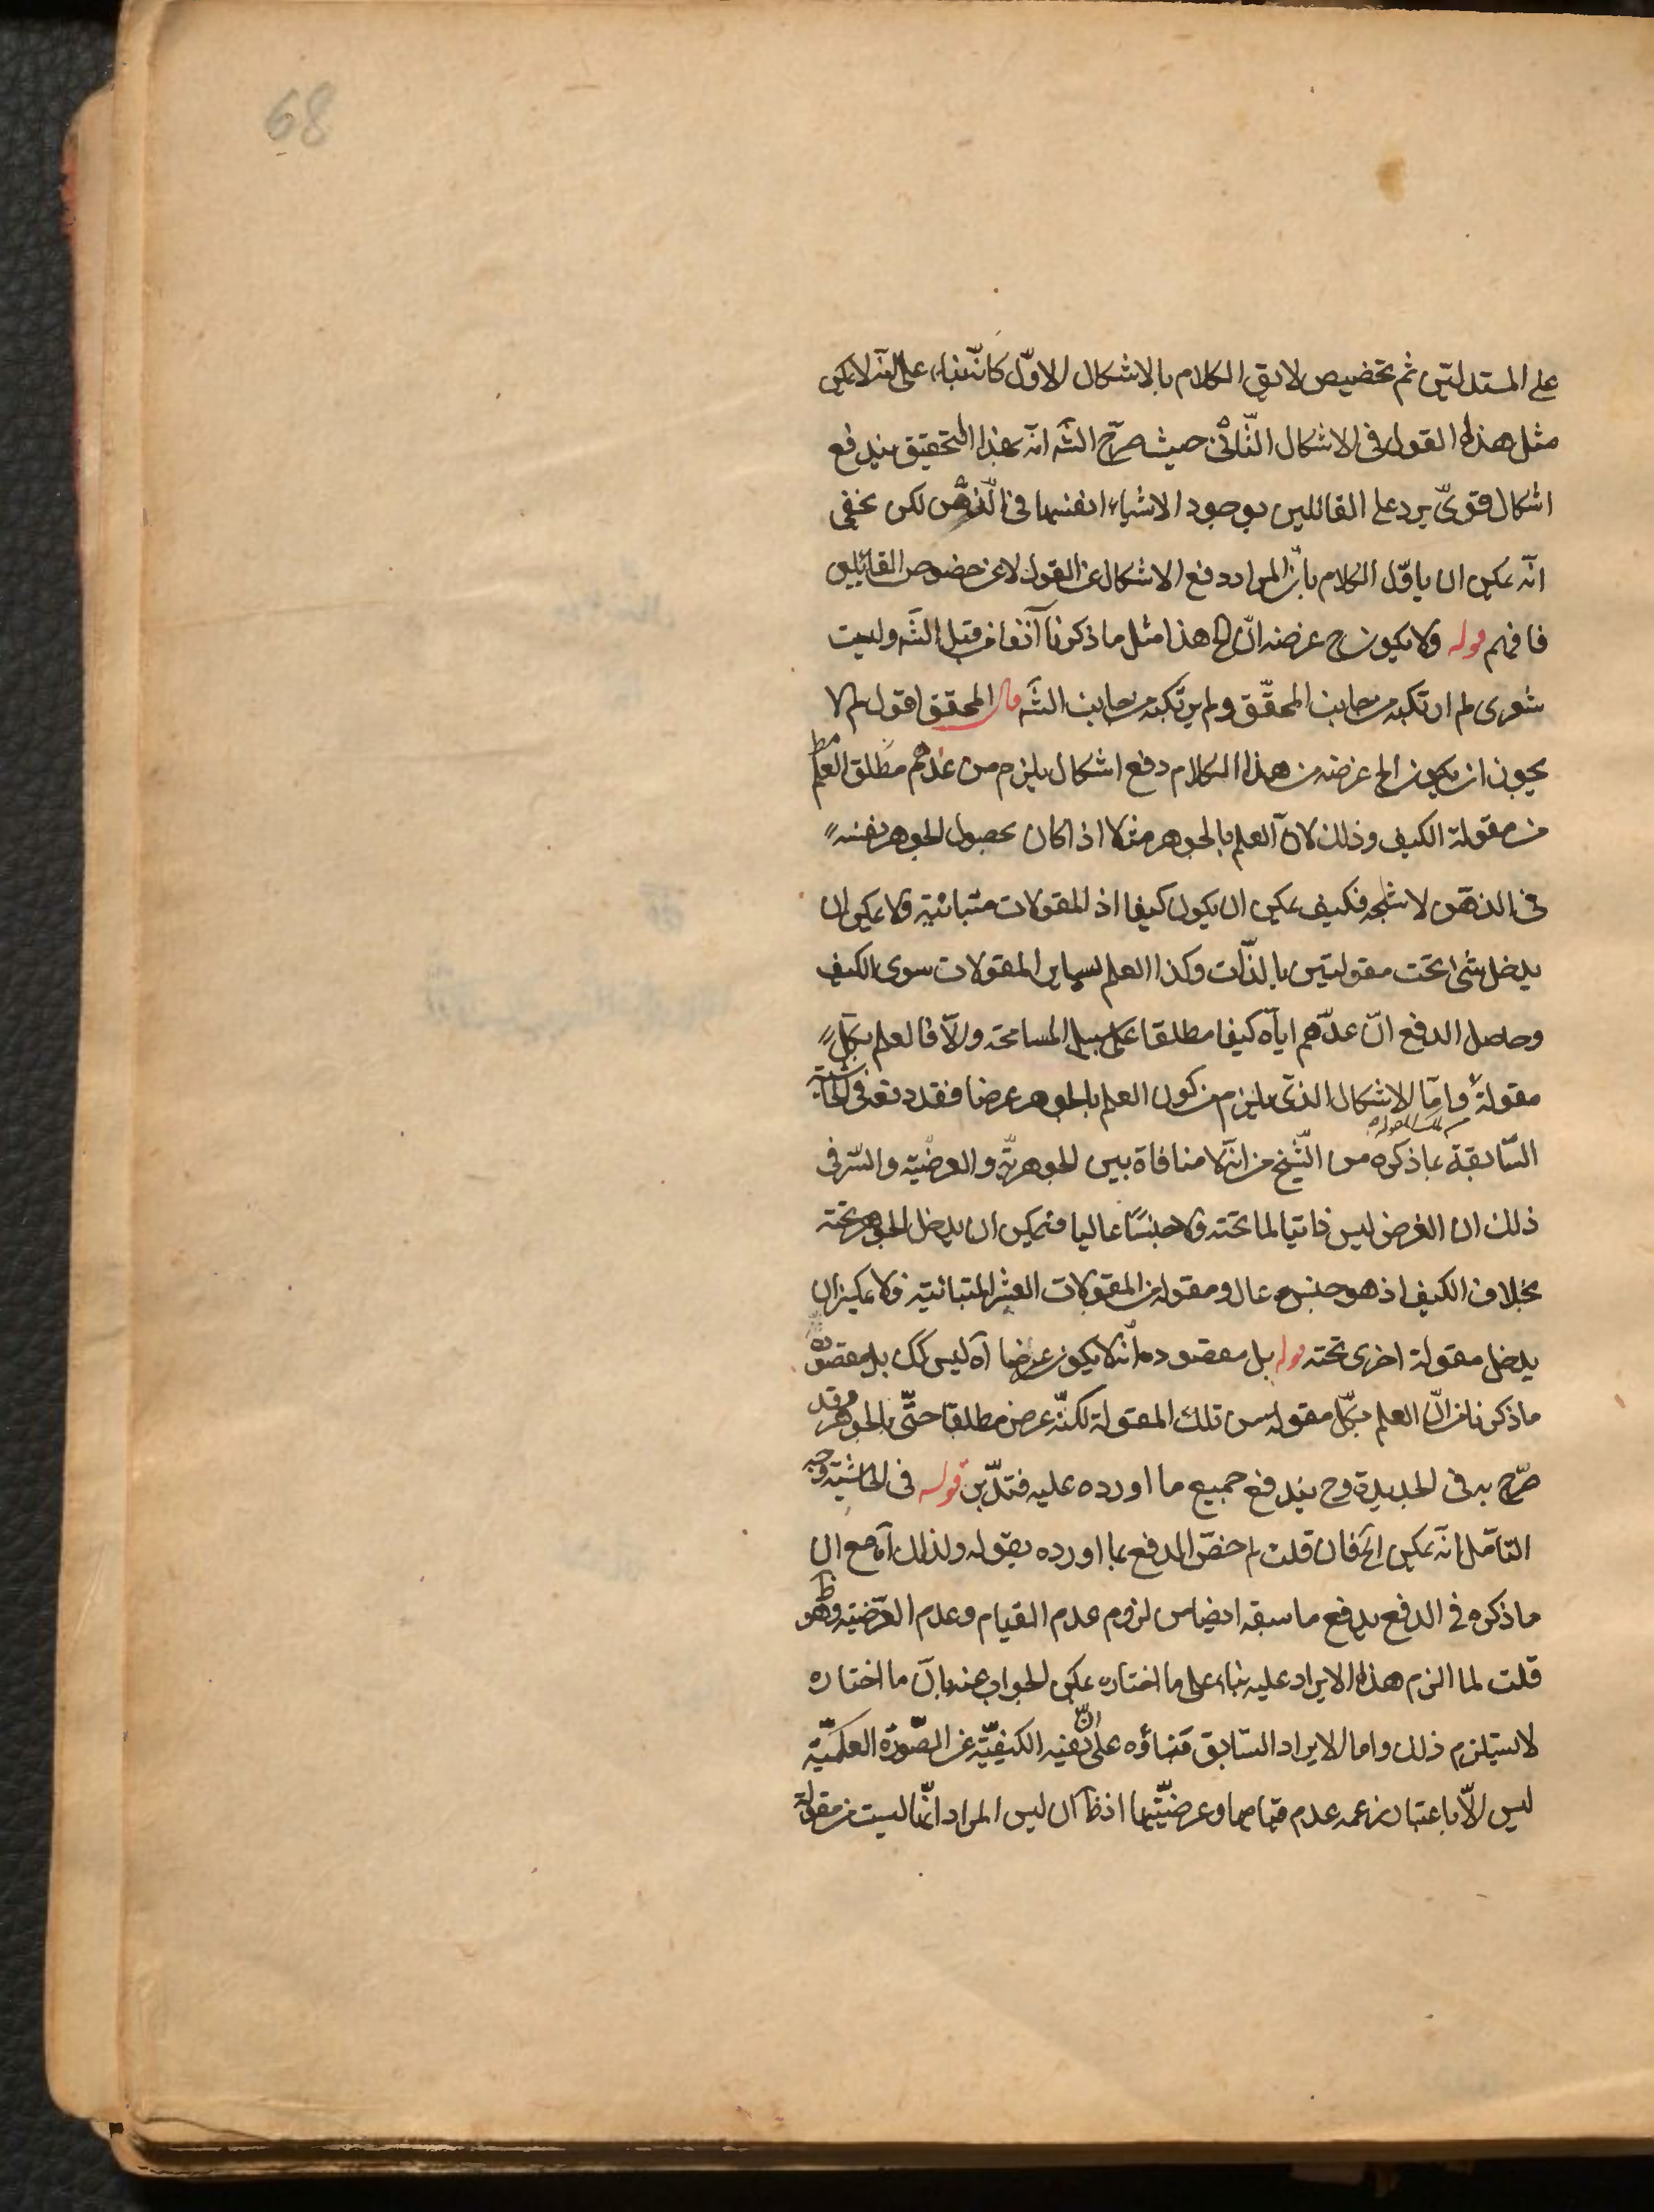 68
على المستدلين ثم تخصيص لائق الكلام بالاشكال الاوّل كانّه بناء على انّه لا يمكن
مثل هذا القول فى الاشكال الثّانى حيث صرّح الشّه انّه بهذا التحقيق يندفع
اشكال قوىّ يرد على القائلين بوجود الاشياء انفسها فى الذّهن لكن يخفى
انّه يمكن ان ياوّل الكلام بانّ المراد دفع الاشكال عن القول لا عن خصوص القائلين
فافهم قوله ولا يكون ح غرضه انّ الخ هذا مثل ما ذكرنا آنفا من قبل الشّه وليت
شعرى لم ارتكبه من جانب المحقّق ولم يرتكبه من جانب الشّه قال المحقق اقول لم لا
يجوز ان يكون الخ غرضه من هذا الكلام دفع اشكال يلزم من عدّهم مطلق العلم
من مقولة الكيف وذلك لانّ العلم بالجوهر مثلا اذا كان بحصول الجوهر نفسه
فى الذهن لا شبحه فكيف يمكن ان يكون كيفا اذ المقولات متبائنة ولا يمكن ان
يدخل شئ تحت مقولتين بالذّات وكذا العلم بساير المقولات سوى الكيف
وحاصل الدفع انّ عدّهم ايّاه كيفا مطلقا على سبيل المسامحة والّا فالعلم بكلّ
مقولة وامّا الاشكال الذى يلزم من كون العلم بالجوهر عرضا فقد دفعه فى الحاشية
السّابقة بما ذكره من الشّيخ من انّه لا منافاة بين الجوهريّة والعرضيّة والسّر فى
ذلك ان العرض ليس ذاتيا لما تحته ولا جنسًا عاليا فيمكن ان يدخل الجوهر تحته
بخلاف الكيف اذ هو جنس عال ومقولة من المقولات العشر المتبائنة فلا يمكن ان
يدخل مقولة اخرى تحته قوله بل مقصوده انّه لا يكون عرضا آه ليس كك بل مقصوده
ما ذكرنا من انّ العلم بكلّ مقولة من تلك المقولة لكنّه عرض مطلقا حتّى بالجوهر وقد
صرّح به فى الجديدة وح يندفع جميع ما اورده عليه فتدبّر قوله فى الحاشية وجه
التأمّل انّه يمكن آه فان قلت لم خصّ الدفع بما اورده بقوله ولذلك آه مع ان
ما ذكره فى الدفع يدفع ما سبقه ايضا من لزوم عدم القيام وعدم العرضيّة وهو ظ
قلت لما الزم هذا الايراد عليه بناء على ما اختاره يمكن الجواب عنه بانّ ما اختاره
لا يستلزم ذلك واما الايراد السّابق فبناؤه على انّ نفيه الكيفيّة عن الصّورة العلميّة
ليس الّا باعتبار زعمه عدم قيامها وعرضيّتها اذ ظ ان ليس المراد انّها ليست من مقولة